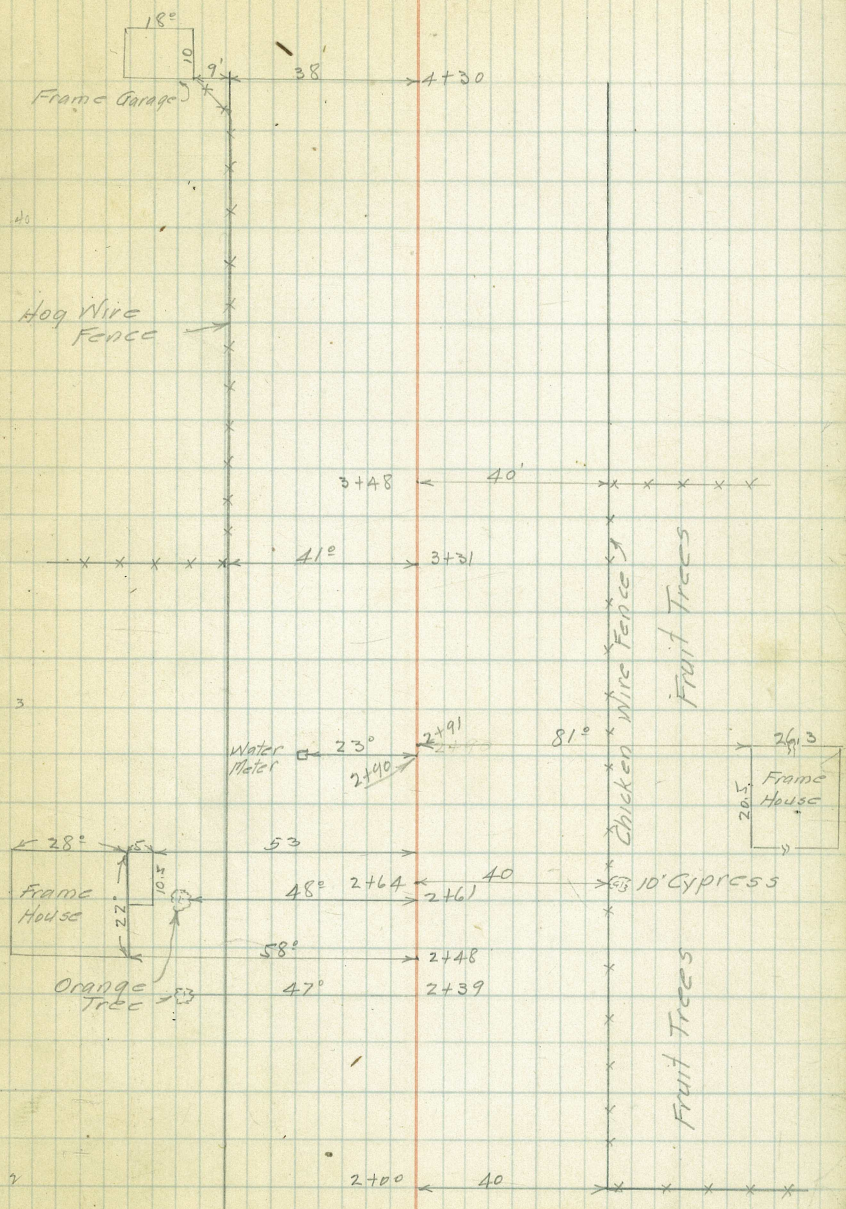 18º
10
9'
38'
4+30
3
Frame Garage
40
Hog Wire
Fence
3+48
40'
41º
3+31
Chicken Wire Fence
Fruit Trees
3
2+91
Water
Meter
23º
2+90
81º
26.3
20.5
Frame
House
28º
5
53
10.5
22º
Frame
House
48º
2+64
40
2+61
10" Cypress
58º
2+48
Orange
Tree
47º
2+39
Fruit Trees
2
2+00
40